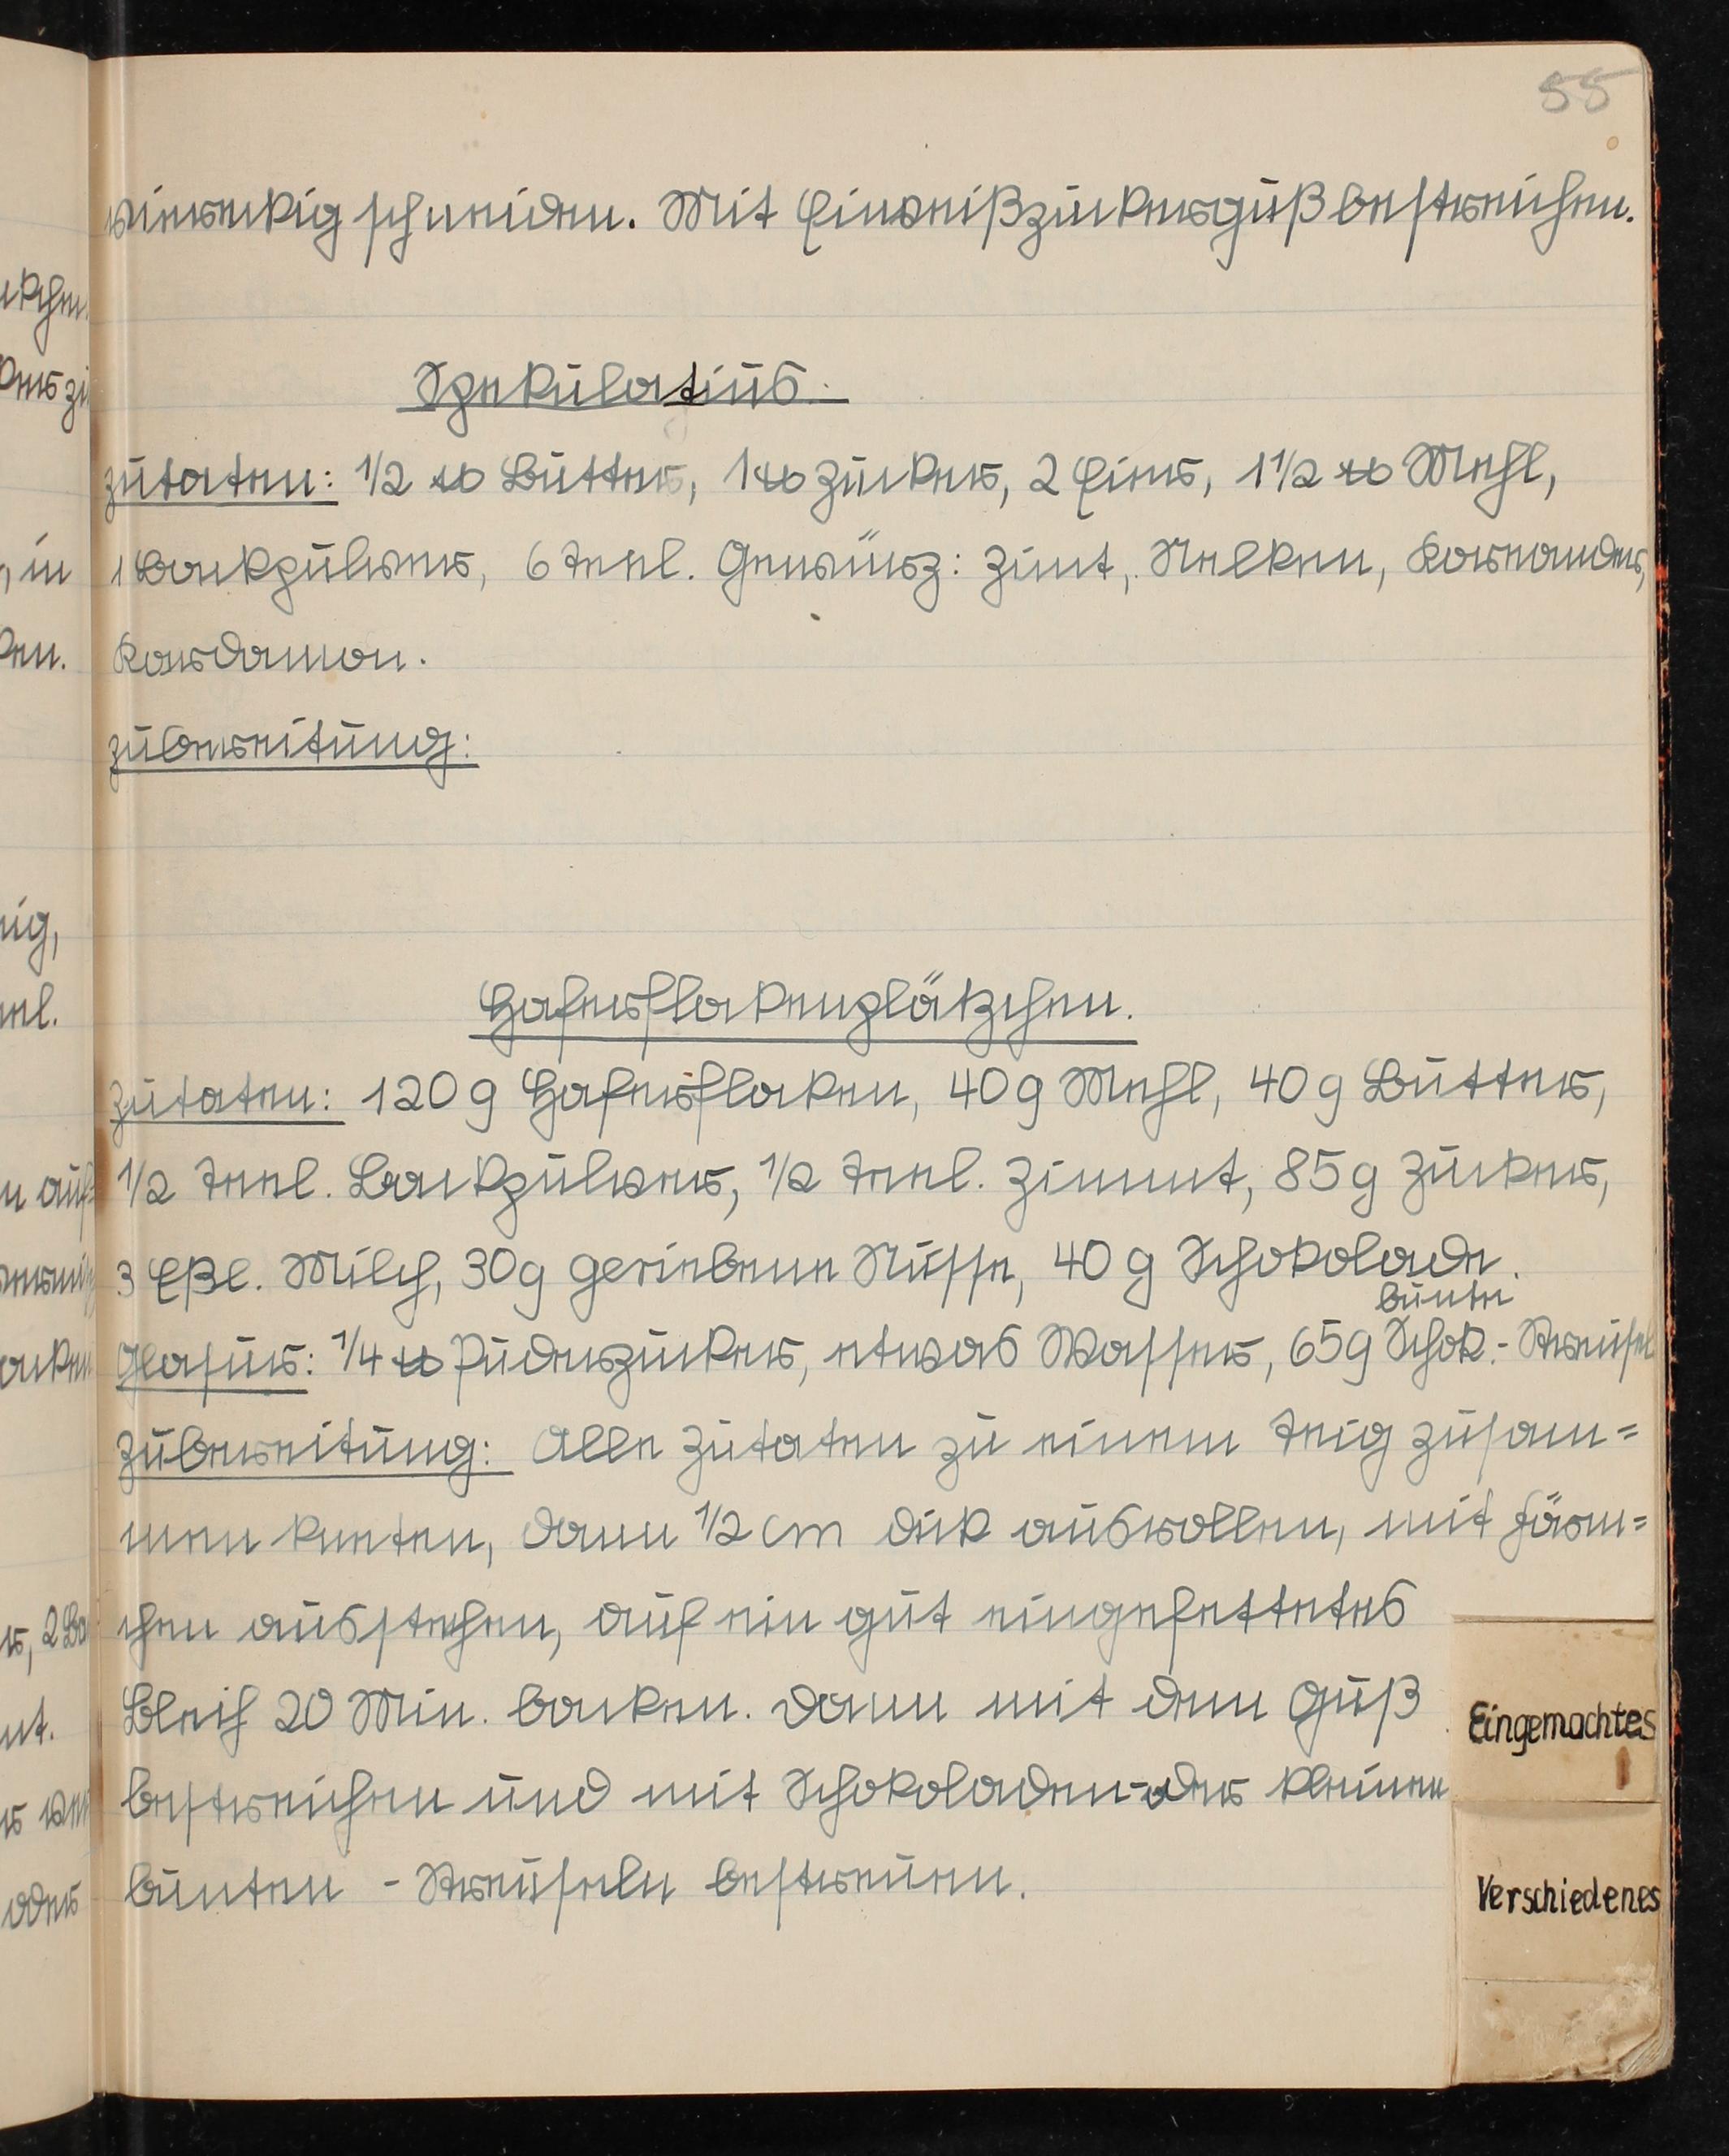 55
viereckig schneiden. Mit Eiweißzuckerguß bestreichen.
Spekulatius.
Zutaten: 1/2 ℔ Butter, 1 ℔ Zucker, 2 Eier, 1 1/2 ℔ Mehl,
1 Backpulver, 6 Teel. Gewürz: Zimt, Nelken, Koreander,
Kardamon.
Zubereitung:
Haferflockenplätzchen.
Zutaten: 120 g Haferflocken, 40 g Mehl, 40 g Butter,
1/2 Teel. Backpulver, 1/2 Teel. Zimmt, 85 g Zucker,
3 Eßl. Milch, 30 g geriebene Nüsse, 40 g Schokolade.
bunte
Glasur: 1/4 ℔ Puderzucker, etwas Wasser, 65 g Schok.- Streusel
Zubereitung: Alle Zutaten zu einem Teig zusam=
men kneten, dann 1/2 cm dick ausrollen, mit Förm=
chen ausstechen, auf ein gut eingefettetes
Blech 20 Min. backen. Dann mit dem Guß
bestreichen und mit Schokoladen- oder kleinen
bunten - Streuseln bestreuen.
Eingemachtes
Verschiedenes